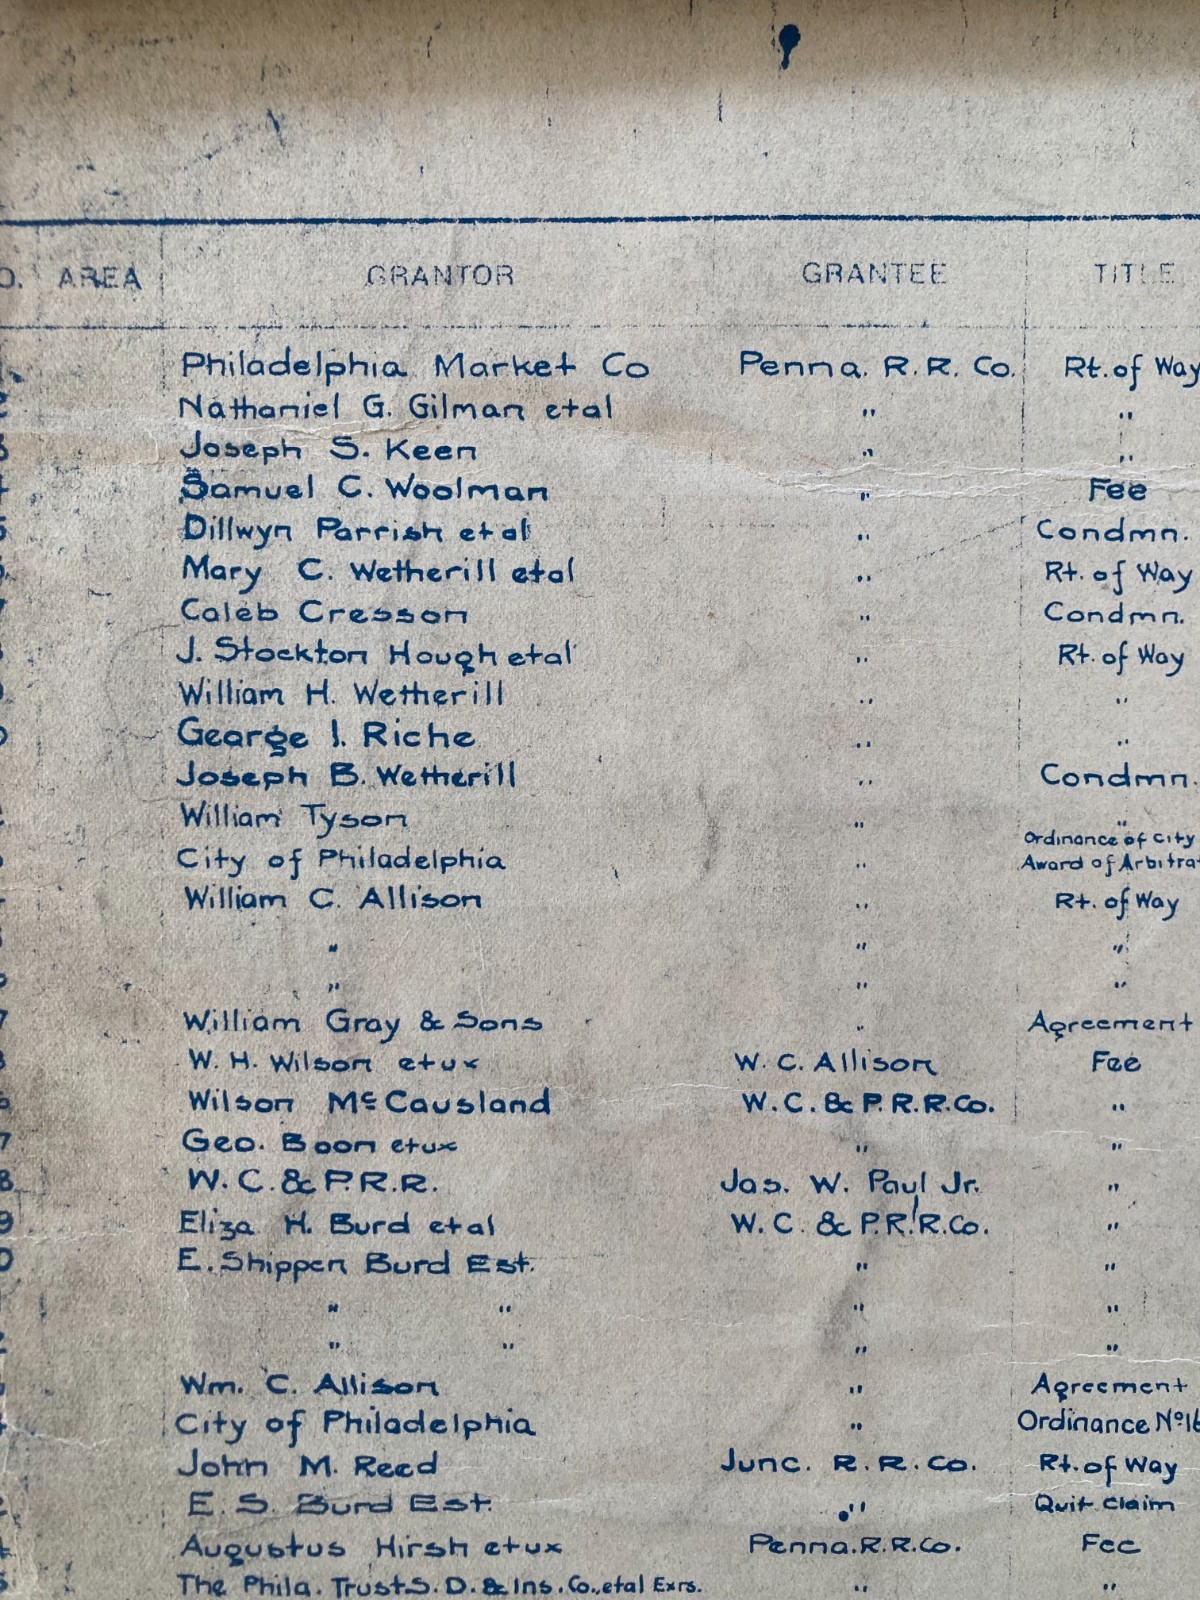 O. AREA GRANTOR GRANTEE TITLE
Philadelphia Market Co Penna. R.R. Co. Rt. of Way
Nathaniel G. Gilman etal " "
Joseph S. Keen " "
Samuel C. Woolman " Fee
Dillwyn Parrish etal " Condmn.
Mary C. Wetherill etal " Rt. of Way
7 Caleb Cresson " Condmn.
J. Stockton Hough etal " Rt. of Way
William H. Wetherill " "
George I. Riche " "
Joseph B. Wetherill " Condmn.
William Tyson " "
City of Philadelphia " Ordinance of City
Award of Arbitra
William C. Allison " Rt. of Way
" " "
" " "
7 William Gray & Sons " Agreement
8 W. H. Wilson etux W. C. Allison Fee
6 Wilson McCausland W.C. & P.R.R.Co. "
7 Geo. Boon etux " "
8 W.C. & P.R.R. Jas. W. Paul Jr. "
9 Eliza H. Burd etal W.C. & P.R.R.Co. "
0 E. Shippen Burd Est. " "
" " " "
" " " "
Wm. C. Allison " Agreement
City of Philadelphia " Ordinance No. 16
John M. Reed Junc. R.R.Co. Rt. of Way
E. S. Burd Est. " Quit claim
Augustus Hirsh etux Penna.R.R.Co. Fee
The Phila. Trust S. D. & Ins. Co., etal Exrs. " "